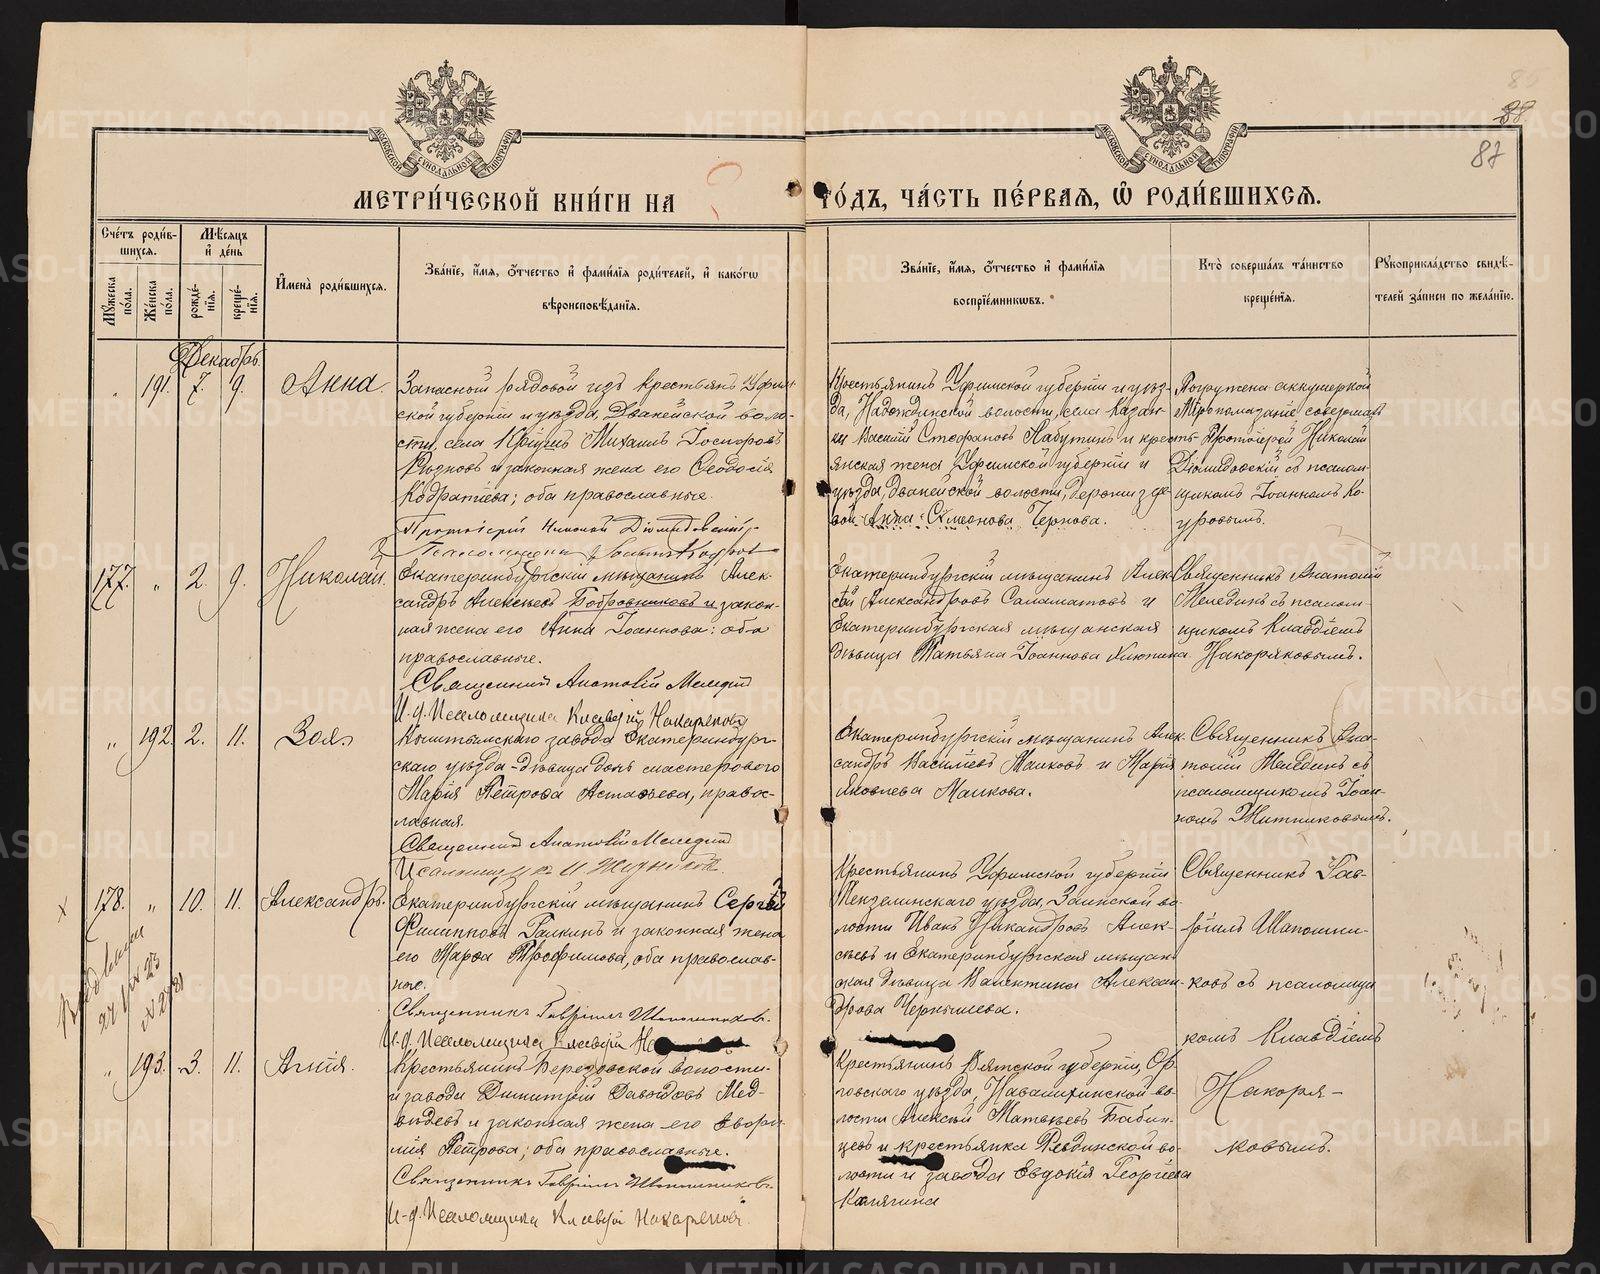 88
87
МЕТРИ́ЧЕСКОЙ КНИ́ГИ НА ГО́ДЪ, ЧА́СТЬ ПЕ́РВАЯ, Ѽ РОДИ́ВШИХСЯ.
Сче́тъ роди́вшихся.
Мѣ́сяцъ и де́нь
Мꙋ́жеска по́ла.
Же́нска по́ла.
рожде́нїя.
креще́нїя.
И҆мена̀ роди́вшихся.
Зва́нїе, и҆́мя, ѻ҆́тчество и҆ фами́лїя роди́телей, и҆ како́гѡ
вѣроисповѣ́данїя.
Зва́нїе, и҆́мя, ѻ҆́тчество и҆ фами́лїя
воспрїе́мниковъ.
Кто̀ соверша́лъ та́инство
креще́нїя.
Рꙋкоприкла́дство свидѣ́-
телей за́писи по жела́нїю.
Декабрь.
191. 7. 9. Анна.
Запасной рядовой изъ крестьянъ Уфим-
ской губерніи и уѣзда, Дванейской воло-
сти, села
Михаилъ
и законная жена его Ѳеодосія
оба православные.
Протоіерей Николай Діомидовскій
Крестьянинъ Уфимской губерніи и уѣз-
да, Надеждинской волости, села Казан-
ки Василій Стефановъ Набутинъ и кресть-
янская жена Уфимской губерніи и
уѣзда, Дванейской волости, деревни
Анна Симеонова Чернова.
Погружена акушеркой
Мѵропомазаніе совершалъ
Протоіерей Николай
Діомидовскій съ псалом-
щикомъ Іоанномъ Ко-
177. " 2. 9. Николай.
Екатеринбургскій мѣщанинъ Алек-
сандръ Алексѣевъ Бобровниковъ и закон-
ная жена его Анна Іоаннова: оба
православные.
Священникъ Анатолій Меледин
И. д. Псаломщика Клавдій Накоряков
Екатеринбургскій мѣщанинъ Алек-
сѣй Александровъ Саламатовъ и
Екатеринбургская мѣщанская
дѣвица Татьяна Іоаннова
Священникъ Анатолій
Мелединъ съ псалом-
щикомъ Клавдіемъ
Накоряковымъ.
" 192. 2. 11. Зоя.
завода Екатеринбург-
скаго уѣзда - дѣвица дочь мастерового
Марія Петрова Астафьева, правос-
лавная.
Священник Анатолій Меледин
Псаломщикъ И. Житников.
Екатеринбургскій мѣщанинъ Алек-
сандръ Василіевъ Маиковъ и Марія
Яковлева Маикова.
Священникъ Ана-
толій Мелединъ съ
псаломщикомъ Іоан-
номъ Житниковымъ.
178. " 10. 11. Александръ.
Екатеринбургскій мѣщанинъ Сергѣй
Филипповъ Галкинъ и законная жена
его Марѳа Трофимова, оба православ-
ные.
Священникъ Гавріилъ Шапошниковъ.
И. д. Псаломщика Клавдій
Крестьянинъ Уфимской губерніи
Мензелинскаго уѣзда, Заинской во-
лости Иванъ Никандровъ Алек-
сѣевъ и Екатеринбургская мѣщан-
ская дѣвица Валентина Алексан-
дрова Чернышева.
Священникъ Гав-
ріилъ Шапошни-
ковъ съ псаломщи
комъ Клавдіемъ
Накоря-
ковымъ.
" 193. 3. 11.
Крестьянинъ Березовской волости
и завода Димитрій Давидовъ Мед-
вѣдевъ и законная жена его Евфи-
мія Петрова; оба православные.
Священникъ Гавріилъ Шапошниковъ.
И. д. Псаломщика Клавдій Накоряков.
Крестьянинъ Вятской губерніи, Ор-
ловскаго уѣзда, во-
лости Алексѣй Матвѣевъ Бабин-
цевъ и крестьянка Ревдинской во-
лости и завода Евдокія Георгіева